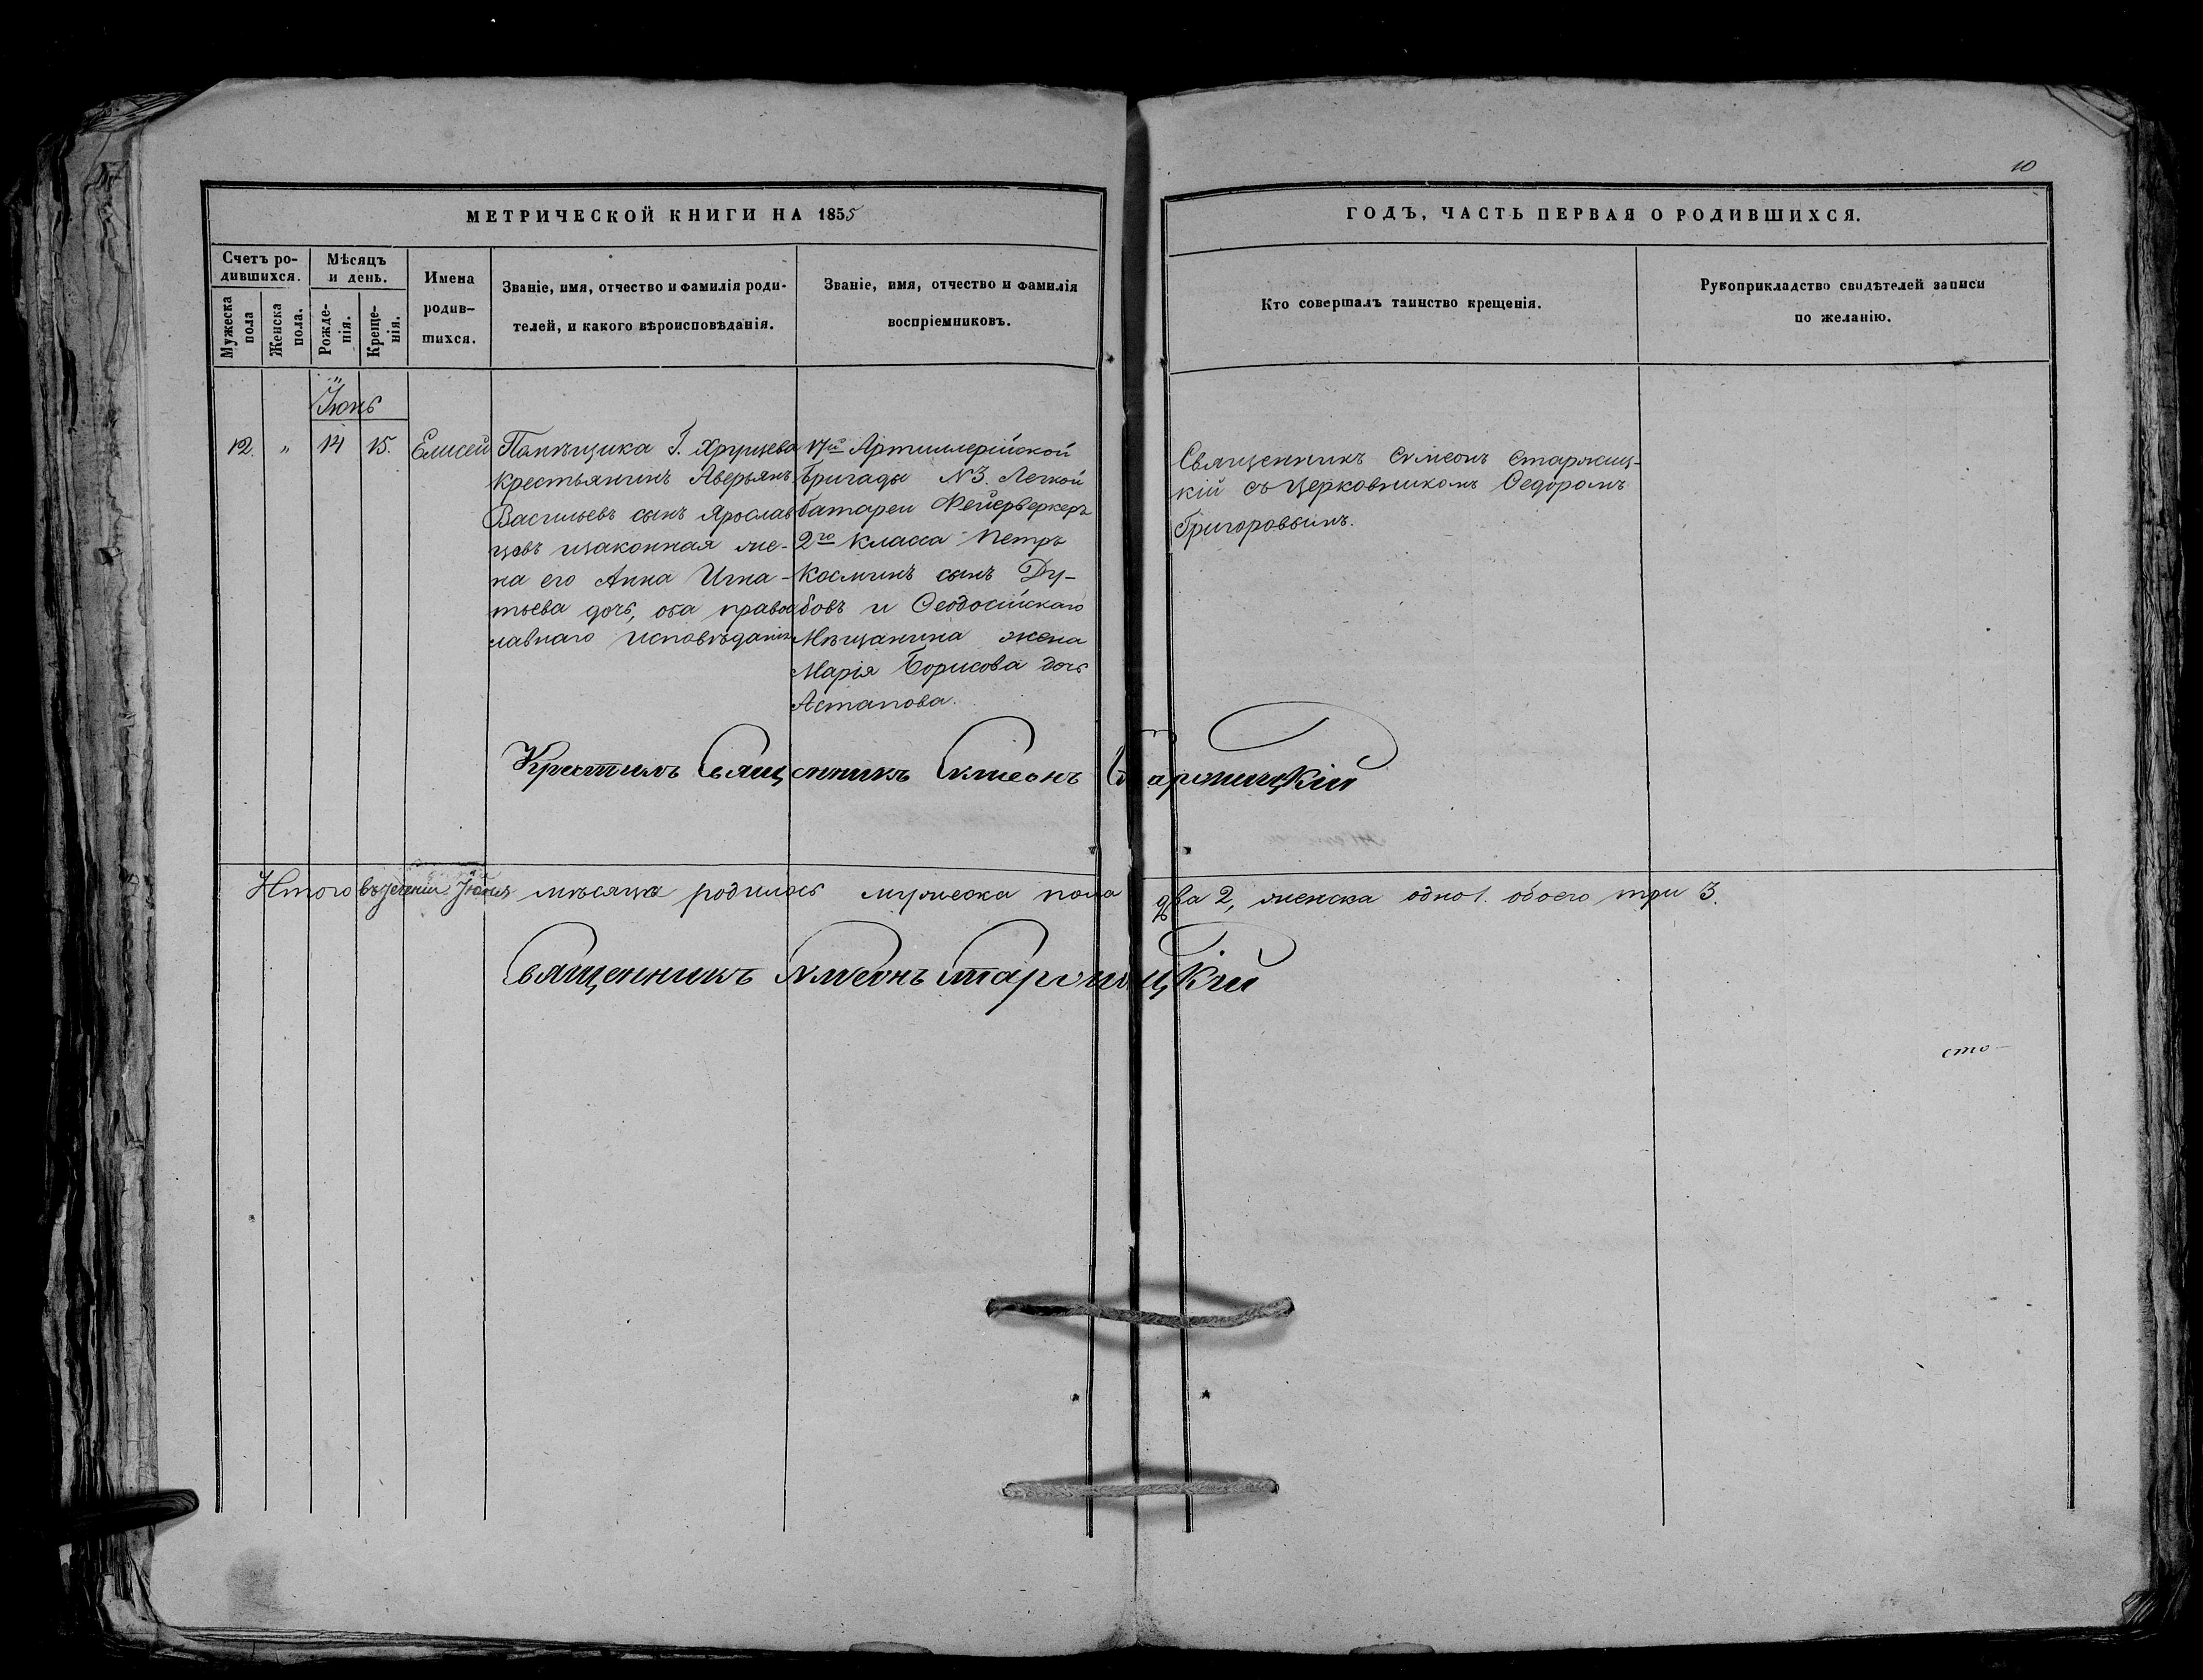 10
МЕТРИЧЕСКОЙ КНИГИ НА 1855
ГОДЪ, ЧАСТЬ ПЕРВАЯ О РОДИВШИХСЯ.
Счетъ ро-
дившихся.
Мужеска
пола
Женска
пола.
Мѣсяцъ
и день.
Рожде-
нія.
Креще-
нія.
Имена
родив-
шихся.
Званіе, имя, отчество и фамилія роди-
телей, и какого вѣроисповѣданія.
Званіе, имя, отчество и фамилія
воспріемниковъ.
Кто совершалъ таинство крещенія.
Рукоприкладство свидѣтелей записи
по желанію.
Іюнь
12. " 14 15. Елисей
Помѣщика Г. Хрущева
крестьянинъ Аверьянъ
Васильевъ сынъ Ярослав
цовъ изаконная же-
на его Анна Игна-
тьева дочь, оба право
славнаго исповѣданія
17й Артиллерійской
бригады N3. Легкой
батареи Фейерверкеръ
2го класса Петръ
Косминъ сынъ Ду-
бовъ и Ѳеодосійскаго
Мѣщанина жена
Марія Борисова дочь
Астапова.
Священникъ Сѵмеонъ Старжиц-
кій съ церковникомъ Ѳедоромъ
Григоровымъ.
Крестилъ Священникъ Сѵмеонъ Старжицкій
Итого въ теченіи Іюня мѣсяца родилось мужеска пола два 2, женска одно 1. обоего три 3.
Священникъ Сѵмеонъ Старжицкій
сто-